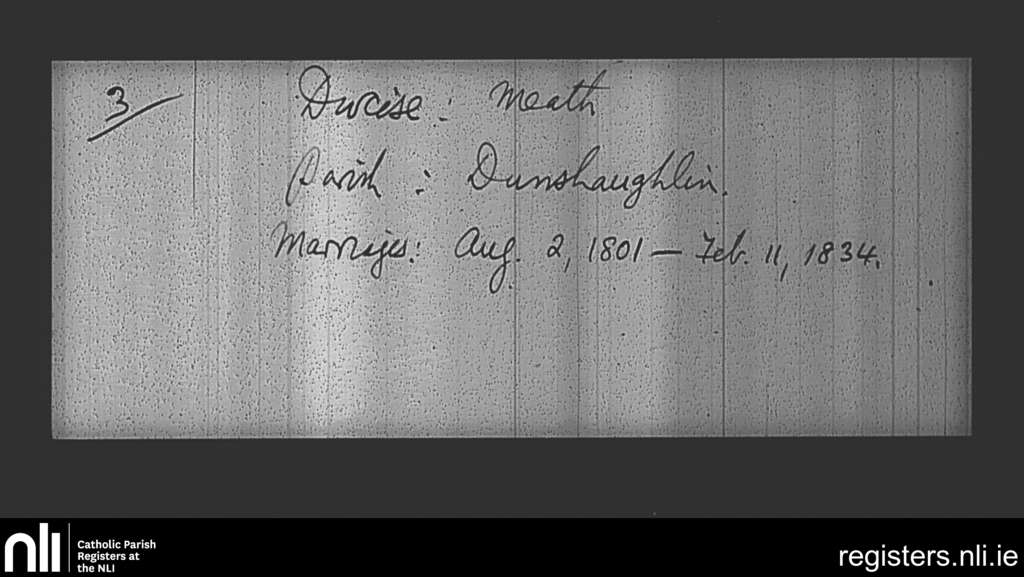 3
Diocese : Meath
Parish : Dunshaughlin.
Marriages: Aug. 2, 1801 — Feb. 11, 1834.
nli
Catholic Parish
Registers at
the NLI
registers.nli.ie